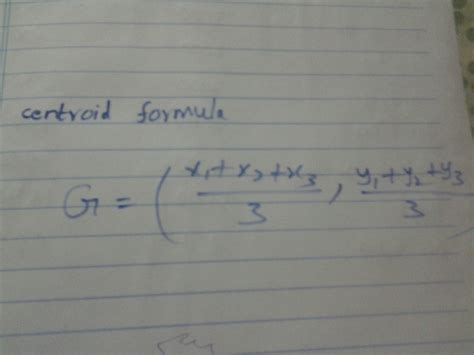 centroid formula
G = ( x₁+x₂+x₃ / 3 , y₁+y₂+y₃ / 3 )